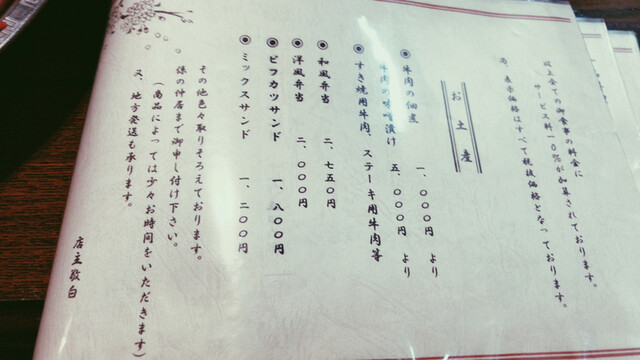 以上全ての御食事の料金に
サービス料一〇%が加算されております。
尚、表示価格はすべて税抜価格となっております。
お土産
◉牛肉の佃煮 一、〇〇〇円 より
牛肉の味噌漬け 五、〇〇〇円 より
◉すき焼用牛肉、ステーキ用牛肉等
◉和風弁当 二、七五〇円
◉洋風弁当 二、〇〇〇円
◉ビフカツサンド 一、八〇〇円
◉ミックスサンド 一、二〇〇円
その他色々取りそろえております。
係の仲居まで御申し付け下さい。
(商品によっては少々お時間をいただきます)
又、地方発送も承ります。
店主敬白